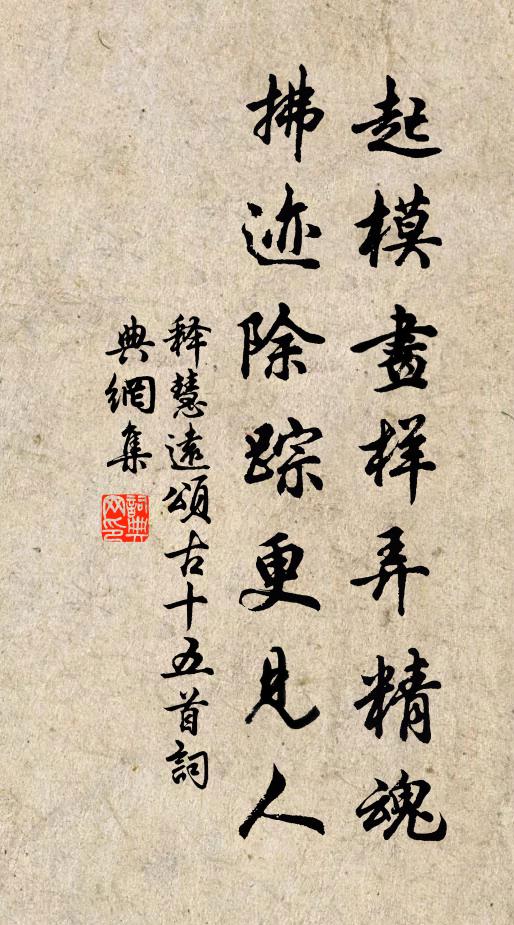 起模畫样弄精魂
拂迹除踪更見人
释慧遠頌古十五首詞
典網集
詞典
网印